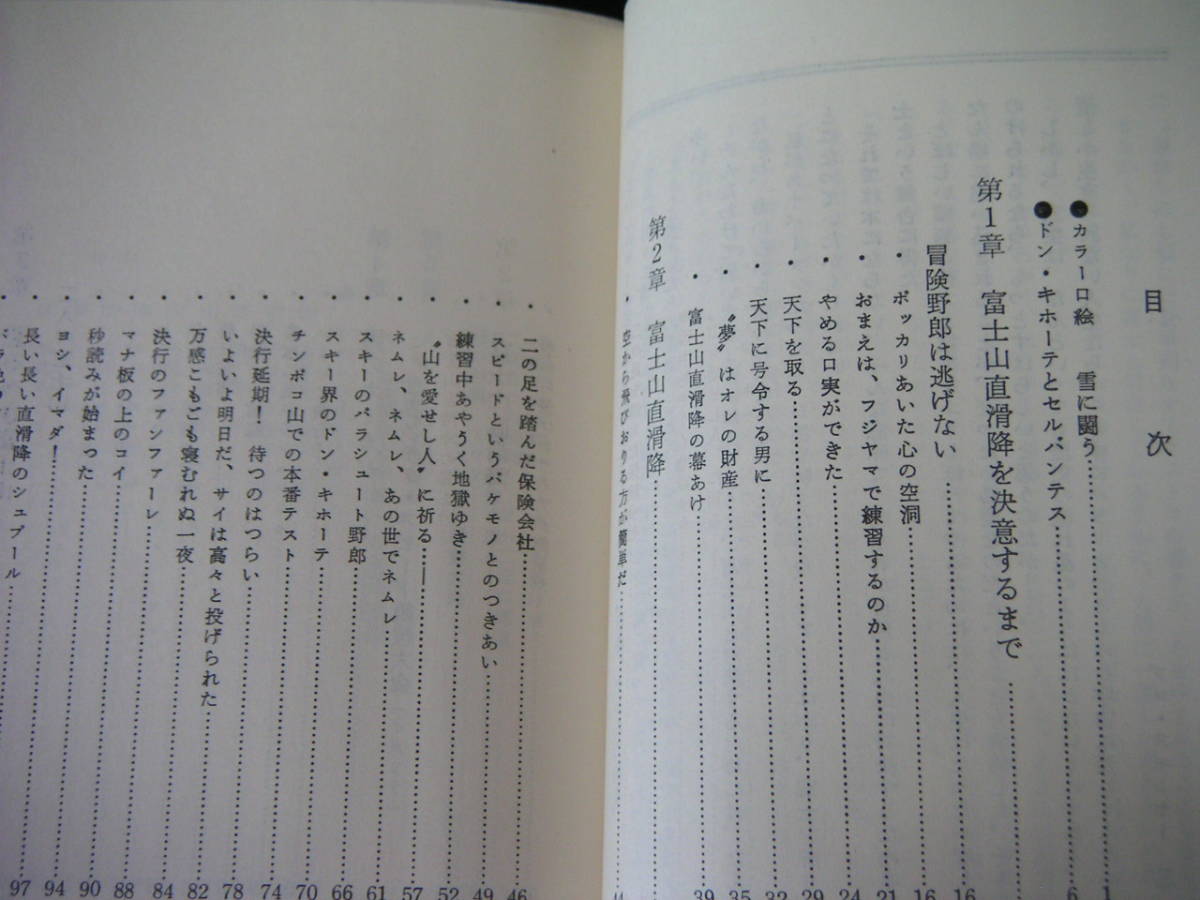 目次
●カラー口絵　雪に闘う……1
●ドン・キホーテとセルバンテス……6
第1章　富士山直滑降を決意するまで……
冒険野郎は逃げない……16
・ポッカリあいた心の空洞……16
・おまえは、フジヤマで練習するのか……21
・やめる口実ができた……24
・天下を取る……29
・天下に号令する男に……32
・〝夢〟はオレの財産……35
・富士山直滑降の幕あけ……39
第2章　富士山直滑降……
・空から飛びおりる方が簡単だ……44
・二の足を踏んだ保険会社……46
・スピードというバケモノとのつきあい……49
・練習中あやうく地獄ゆき……52
・〝山を愛せし人〟に祈る……57
・ネムレ、ネムレ、あの世でネムレ……61
・スキーのパラシュート野郎……66
・スキー界のドン・キホーテ……70
・チンボコ山での本番テスト……74
・決行延期！　待つのはつらい……78
・いよいよ明日だ、サイは高々と投げられた……82
・万感こもごも寝むれぬ一夜……84
・決行のファンファーレ……88
・マナ板の上のコイ……90
・秒読みが始まった……94
・ヨシ、イマダ！……97
・長い長い直滑降のシュプール